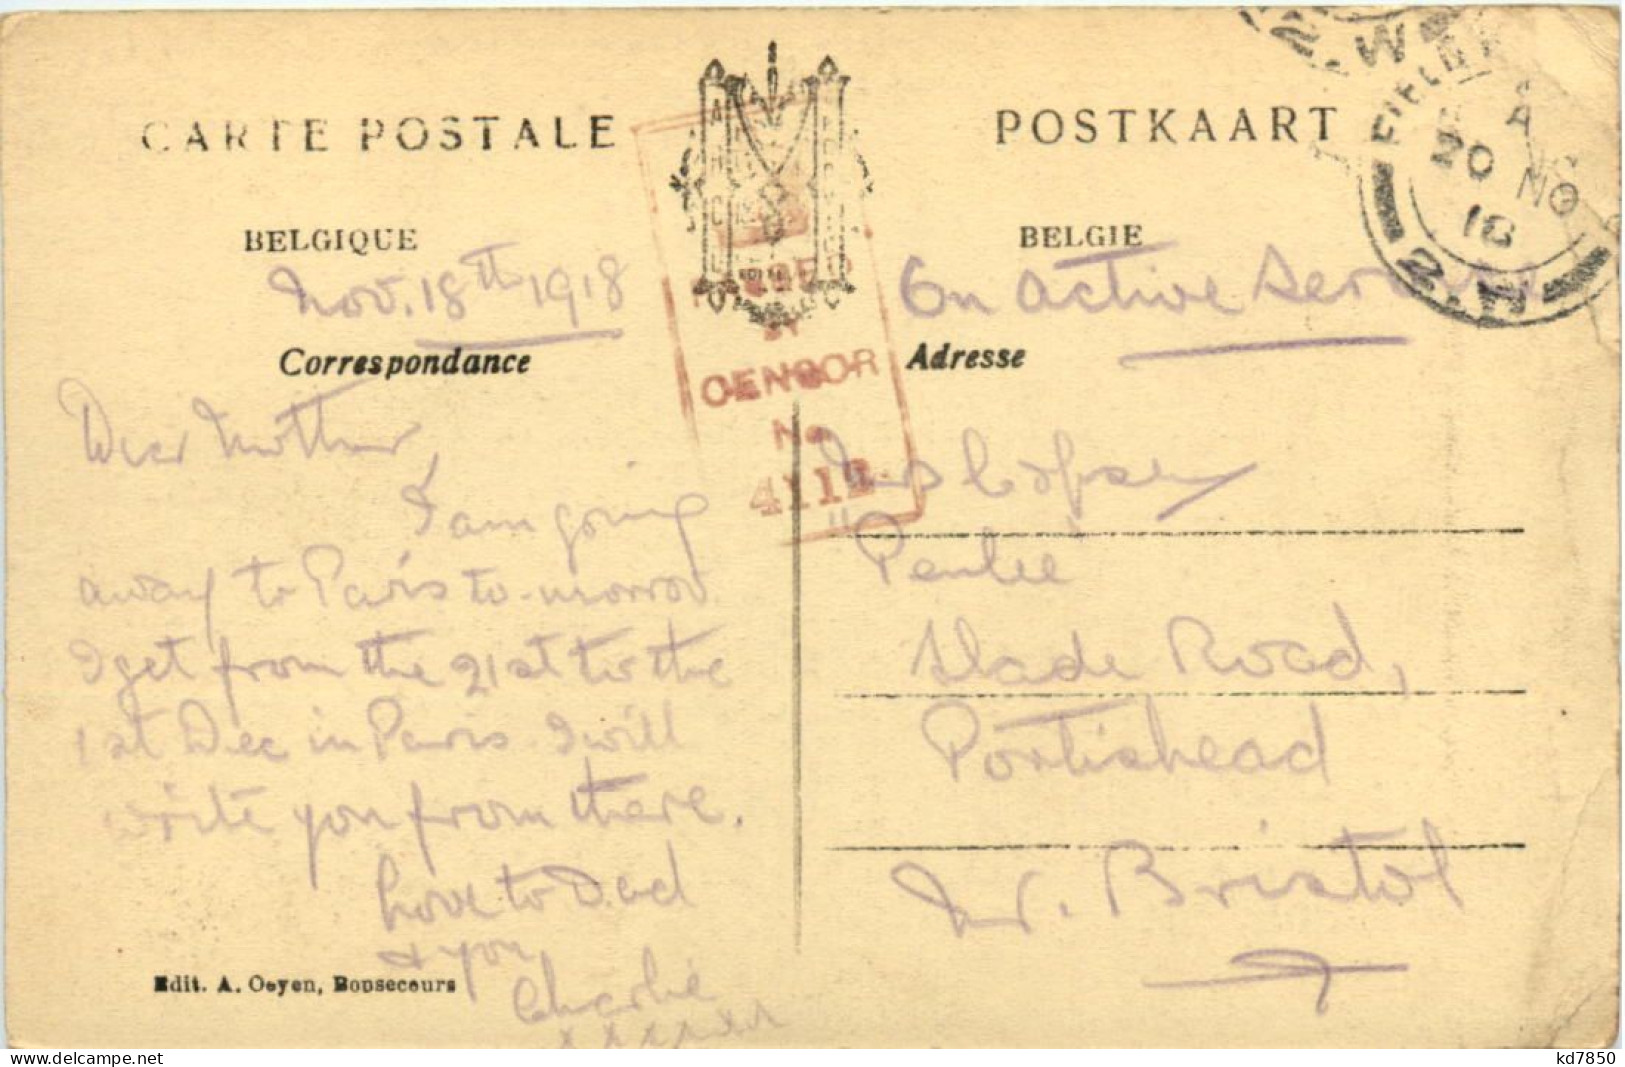 CARTE POSTALE
POSTKAART
BELGIQUE
BELGIE
Nov. 18th 1918
On Active Service
Correspondance
Adresse
PASSED
BY
CENSOR
No
4112
FIELD
A
20 NO
18
2.W
Dear Mother,
I am going
away to Paris to-morrow.
I get from the 21st to the
1st Dec in Paris. I will
write you from there.
Love to Dad
& you
Charlie
xxxxxxx
Mrs Copsey
Penlee
Slade Road,
Portishead
Nr. Bristol
Edit. A. Oeyen, Bonsecours
kd7850